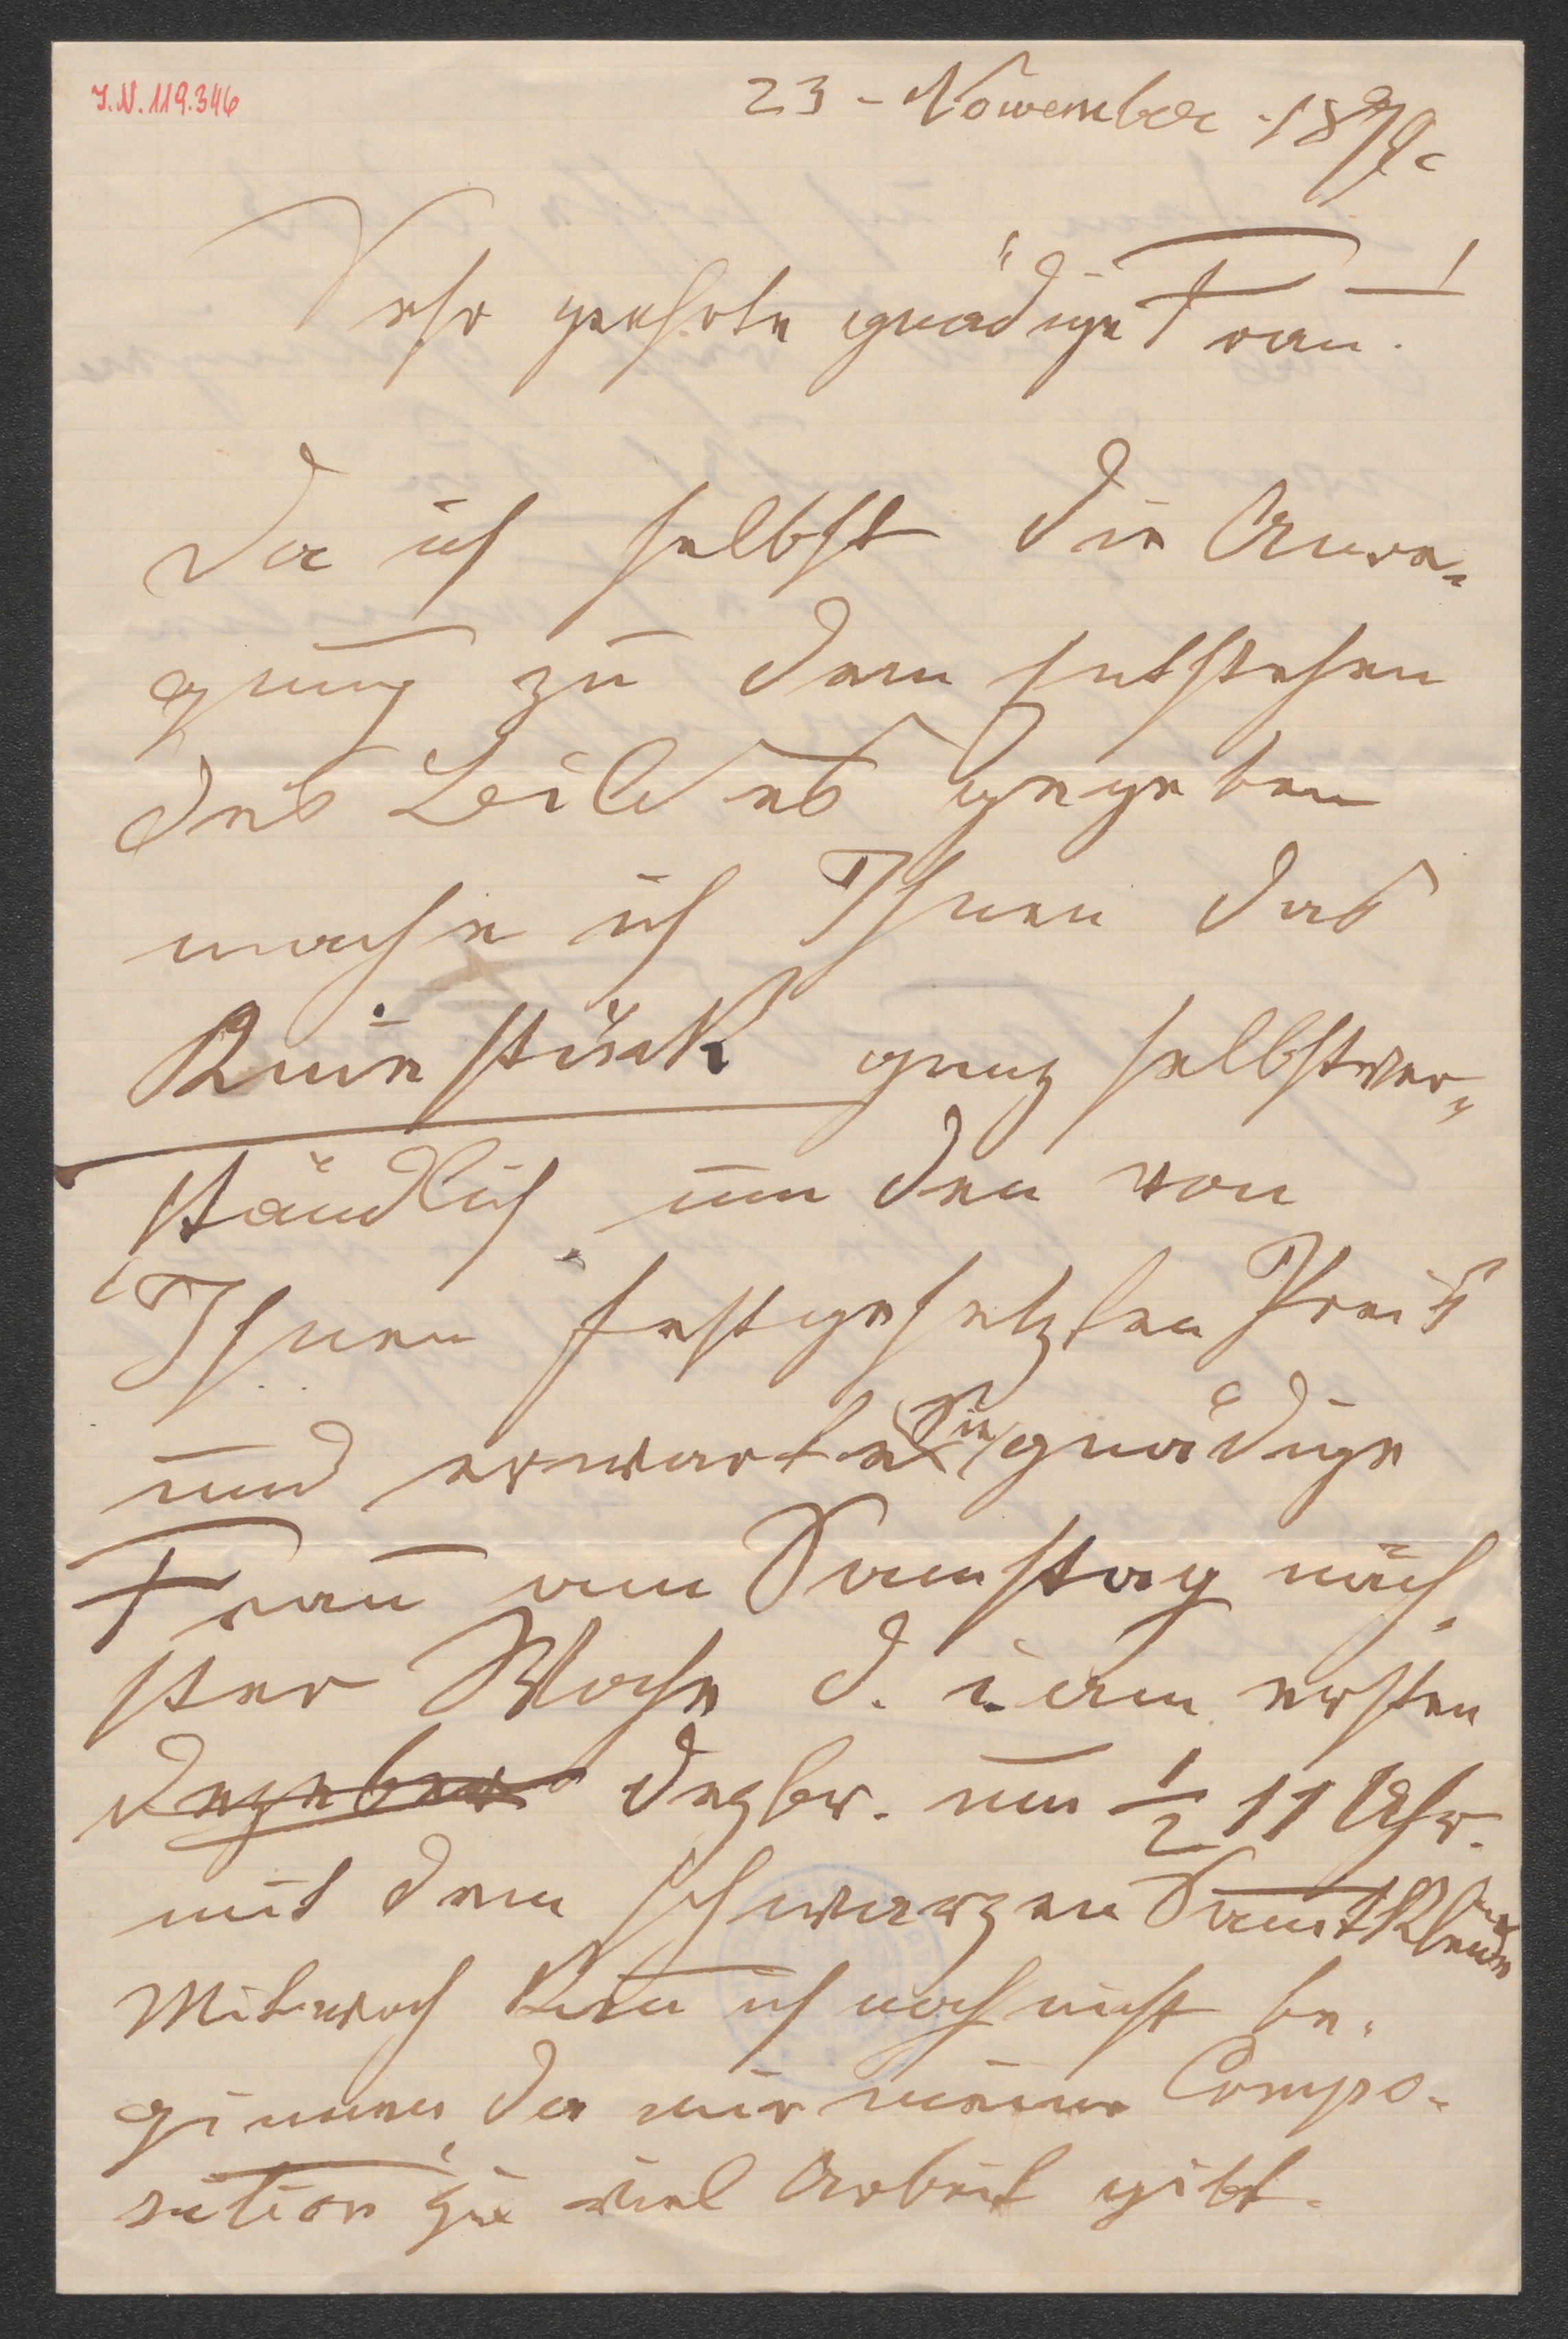 J.N. 119.346
23 - November 1894.
Sehr geehrte gnädige Frau!
Da ich selbst die Anre-
gung zu dem entstehen
des Bildes gegeben
mache ich Ihnen das
Kniestück ganz selbstver-
ständlich um den von
Ihnen festgesetzten Preis
und erwarte Sie gnädige
Frau am Samstag näch-
ster Woche d. i. am ersten
Dezeber Dezbr. um ½ 11 Uhr.
mit dem schwarzen Samtkleide
Mittwoch kan ich noch nicht be-
ginnen, da mir meine Compo-
sition zu viel Arbeit gibt.